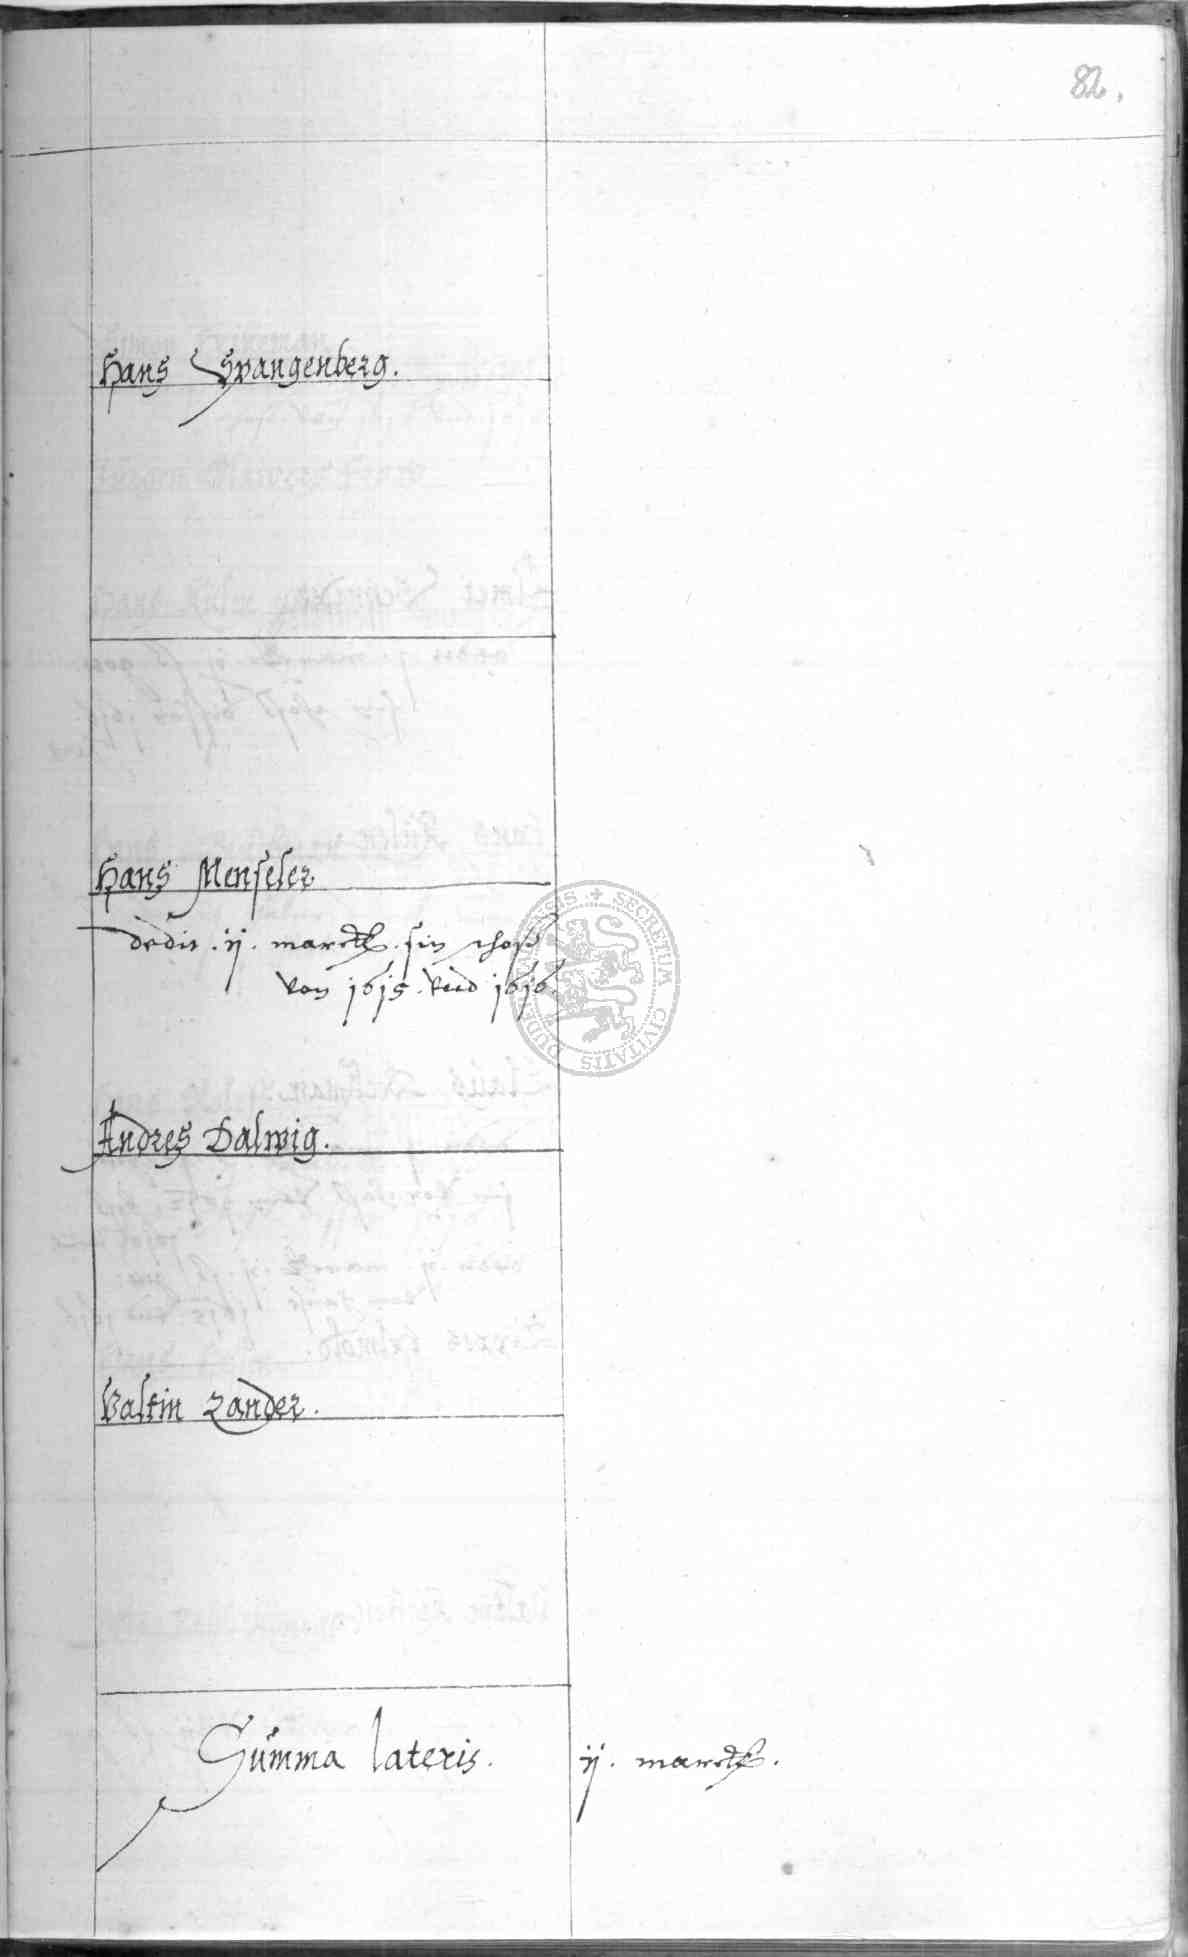 82.
Hans Spangenberg.
Hans Menseler
dedit ·ij· marck. sin schoß
von 1615. vnd 1616.
Andres Dalwig.
Valtin Zander.
Summa lateris. ij. marck.
SECRETUM CIVITATIS DUDERSTADENSIS